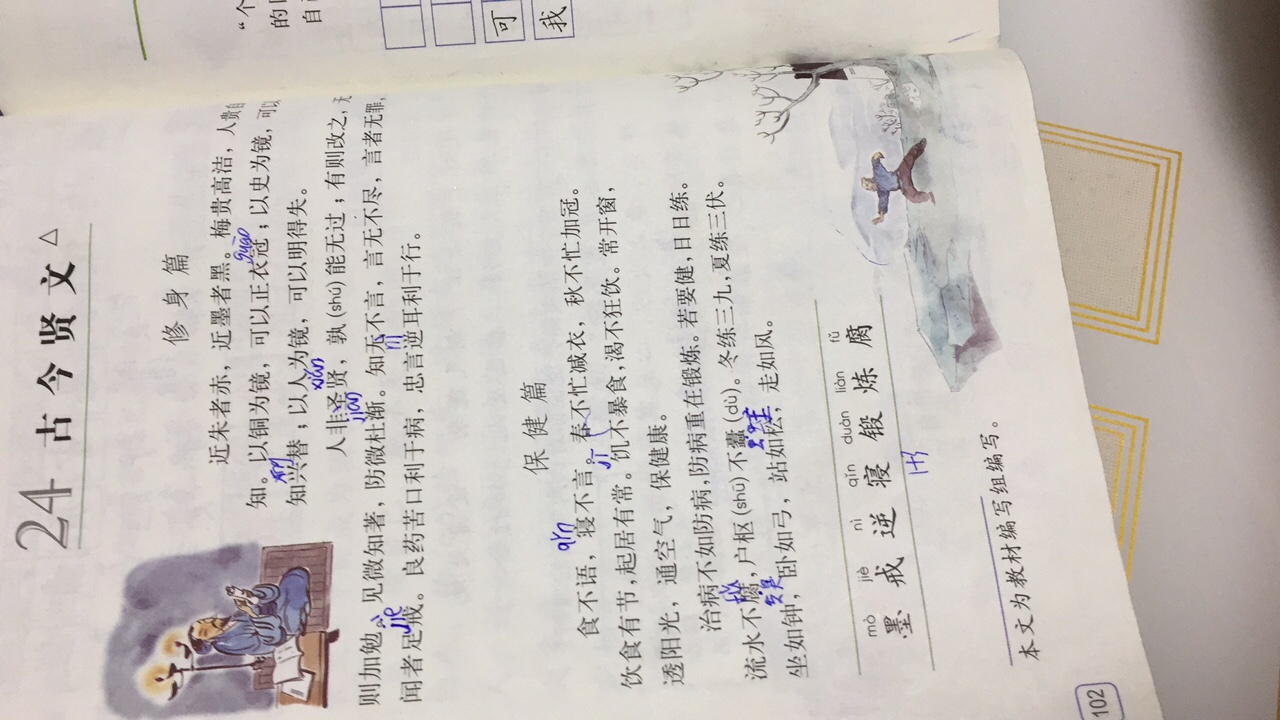 24 古今贤文△
修身篇
近朱者赤，近墨者黑。梅贵高洁，人贵自
知。以铜为镜，可以正衣冠；以史为镜，可以
知兴替；以人为镜，可以明得失。
人非圣贤，孰(shú)能无过；有则改之，无
则加勉。见微知著，防微杜渐。知无不言，言无不尽，言者无罪，
闻者足戒。良药苦口利于病，忠言逆耳利于行。
保健篇
食不语，寝不言。春不忙减衣，秋不忙加冠。
饮食有节，起居有常。饥不暴食，渴不狂饮。常开窗，
透阳光，通空气，保健康。
治病不如防病，防病重在锻炼。若要健，日日练。
流水不腐，户枢(shū)不蠹(dù)。冬练三九，夏练三伏。
坐如钟，卧如弓，站如松，走如风。
mò jiè nì qǐn duàn liàn fǔ
墨 戒 逆 寝 锻 炼 腐
本文为教材编写组编写。
102
“个
的
自
可
我
guān
xián
jiàn
qǐn